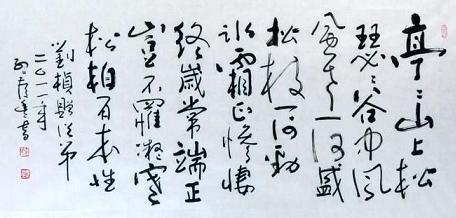 亭〻山上松
瑟〻谷中風
風声一何盛
松枝一何勁
冰霜正慘悽
終歲常端正
豈不罹凝寒
松柏有本性
劉楨贈從弟
二〇一一年
書